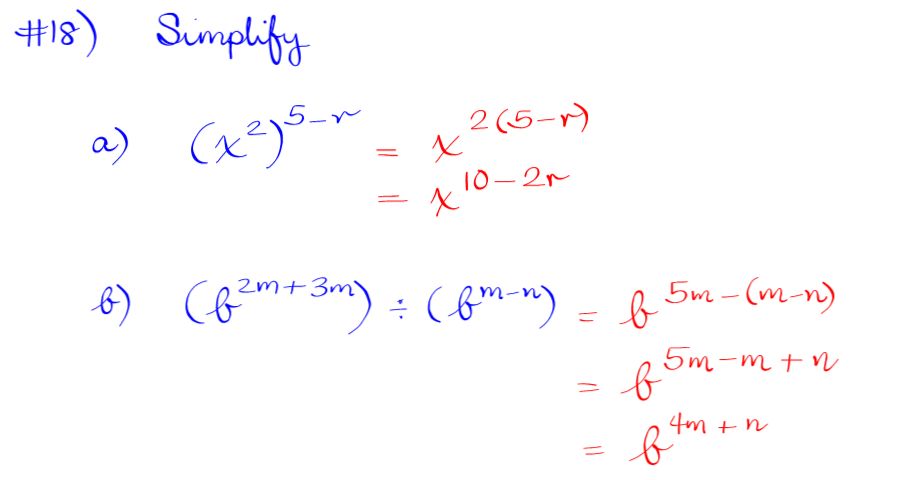 #18) Simplify
a) (x²)⁵⁻ʳ = x²⁽⁵⁻ʳ⁾
= x¹⁰⁻²ʳ
b) (b²ᵐ⁺³ᵐ) ÷ (bᵐ⁻ⁿ) = b⁵ᵐ⁻⁽ᵐ⁻ⁿ⁾
= b⁵ᵐ⁻ᵐ⁺ⁿ
= b⁴ᵐ⁺ⁿ